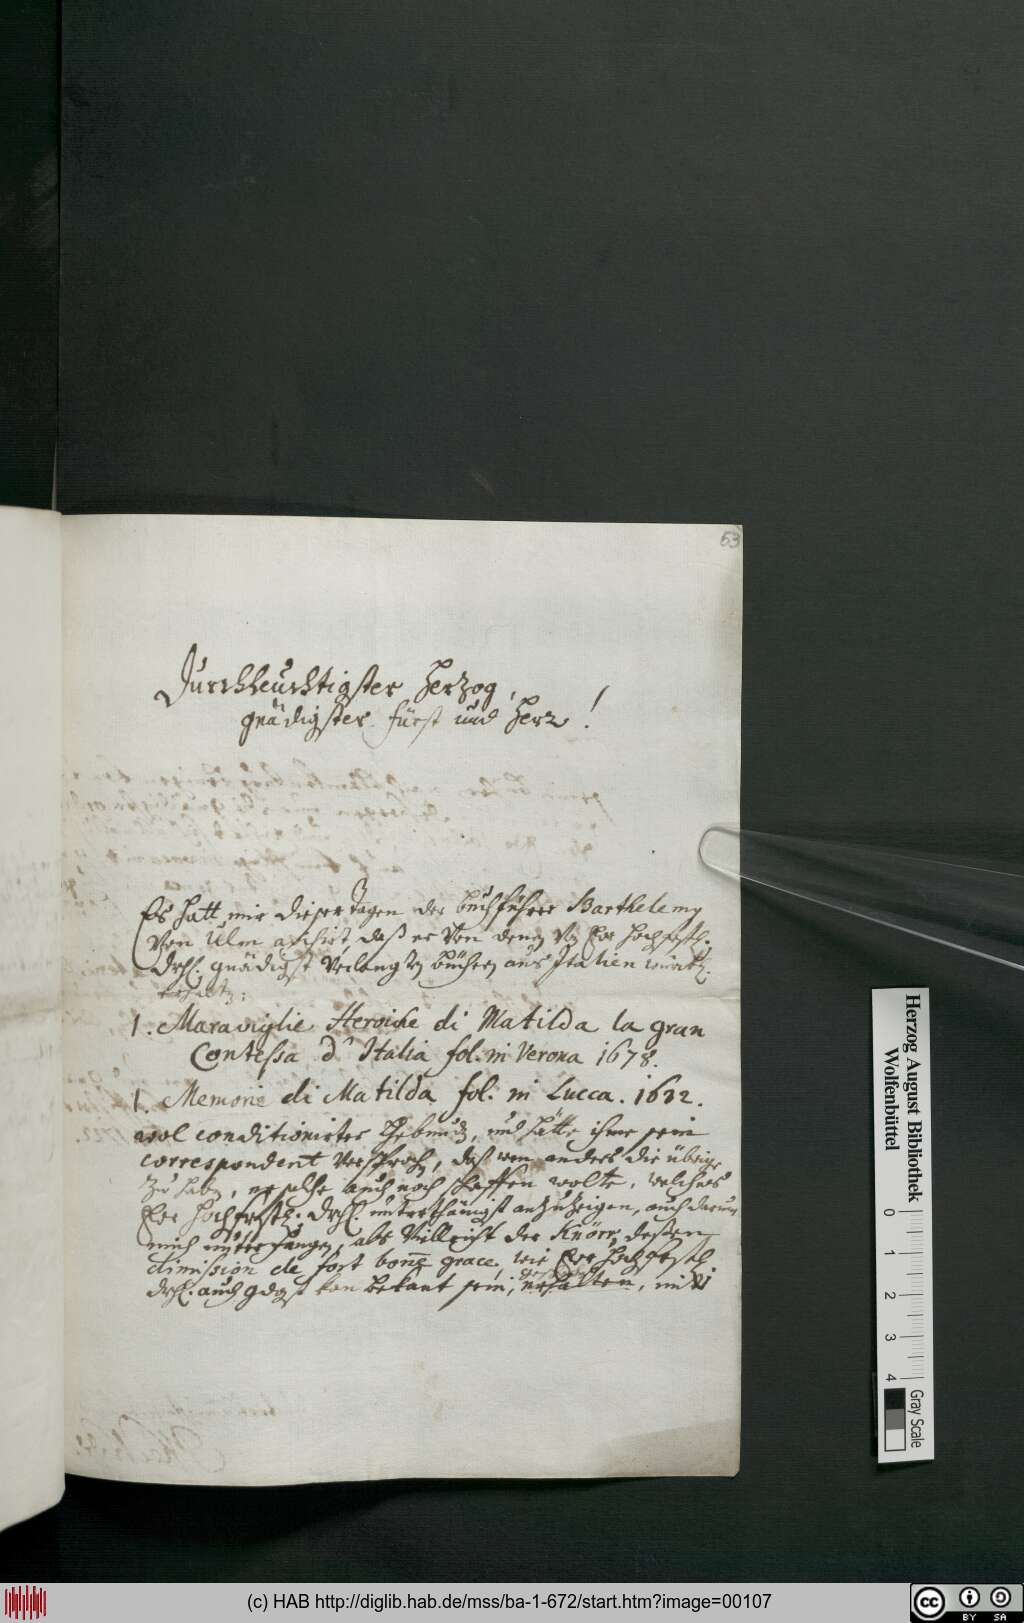 53
Durchleuchtigster Herzog,
gnädigster Fürst und Herr!
Es hatt mir dieser tagen der buchführer Barthelemy
Von Ulm avisirt, daß er Von denen Von Ewr Hochfürstl.
Drchl. gnädigst Verlangten büchern aus Italien
erhalten:
1. Maraviglie Heroiche di Matilda la gran
Contessa d'Italia fol. in Verona 1678.
1. Memorie di Matilda fol. in Lucca. 1632.
wol conditionirter , und hätte ihme sein
correspondent Versprochen, daß wen anders die übrige
Zu haben, er solche auch noch schaffen wolte, welches
Ewr Hochfürstl. Drchl. unterthänigst anzuzeigen, auch darum
mich unterfangen, als Villeicht der Knörr, deßen
dimission de fort bonne grace, wie Ewr Hochfürstl.
Drchl. auch gdgst kan bekant sein, erhalten, mit
Herzog August Bibliothek
Wolfenbüttel
0 1 2 3 4
Gray Scale
(c) HAB http://diglib.hab.de/mss/ba-1-672/start.htm?image=00107
CC BY SA